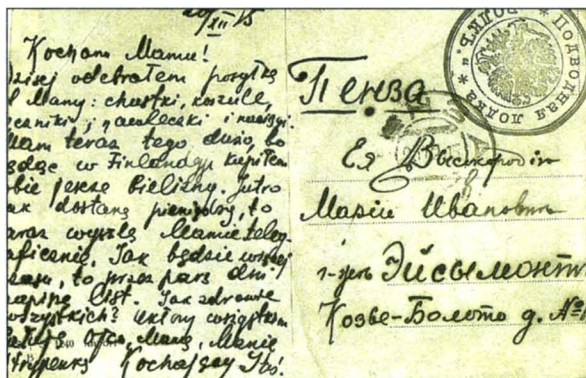 20/XII 15
Kochana Mamu!
Dzisiaj odebrałem posyłkę
od Mamy: chustki, koszule,
ręczniki,
Mam teraz tego dużo, bo
będąc w Finlandji kupiłem
sobie jeszcze bielizny. Jutro
jak dostanę pieniędzy, to
zaraz wyszlę Mamie teleg-
raficznie. Jak będzie więcej
czasu, to przez parę dni
napiszę list. Jak zdrowie
wszystkich? Ukłony wszystkim
Ojca, Mamę, Manię
Kochający
* ПОДВОДНАЯ ЛОДКА *
Пенза
Ея Высокородiю
Марiи Ивановнѣ
г-жѣ Эйсымонтъ
Козье-Болото д. №